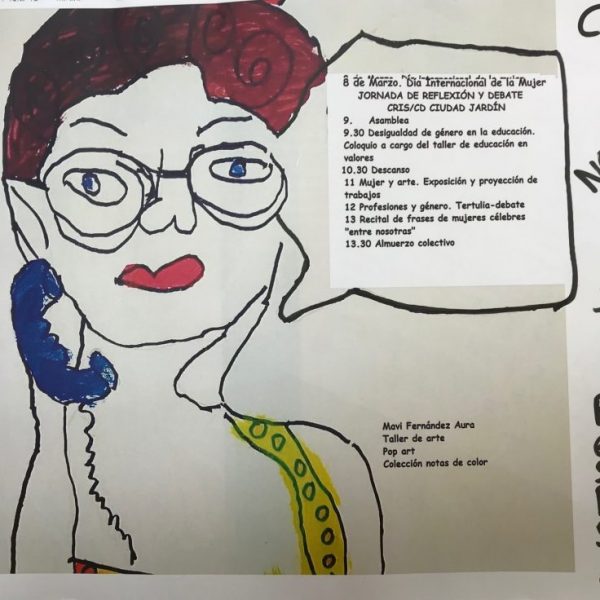 8 de Marzo. Día Internacional de la Mujer
JORNADA DE REFLEXIÓN Y DEBATE
CRIS/CD CIUDAD JARDÍN
9. Asamblea
9.30 Desigualdad de género en la educación.
Coloquio a cargo del taller de educación en
valores
10.30 Descanso
11 Mujer y arte. Exposición y proyección de
trabajos
12 Profesiones y género. Tertulia-debate
13 Recital de frases de mujeres célebres
"entre nosotras"
13.30 Almuerzo colectivo
Mavi Fernández Aura
Taller de arte
Pop art
Colección notas de color